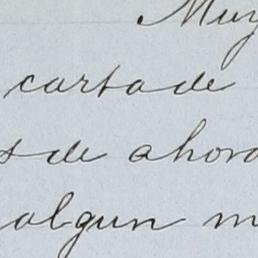 Muy
carta de
sde ahora
algun m